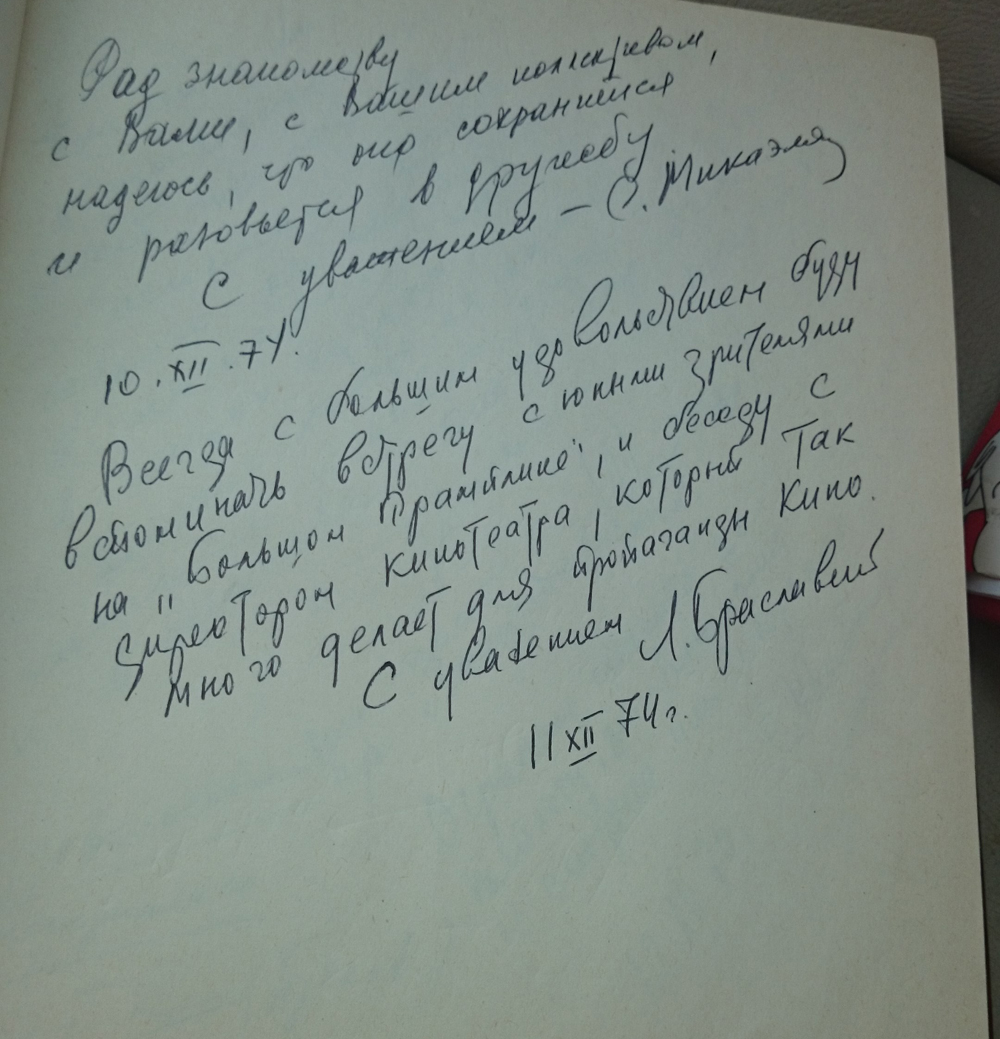 Рад знакомству
с Вами, с Вашим коллективом,
надеюсь, что оно сохранится
и разовьется в дружбу
С уважением – С. Микаэля
10.XII.74.
Всегда с большим удовольствием буду
вспоминать встречу с юными зрителями
на "Большом Трамплине", и беседу с
директором кинотеатра, который так
много делает для пропаганды кино.
С уважением Л. Браславский
11 XII 74 г.